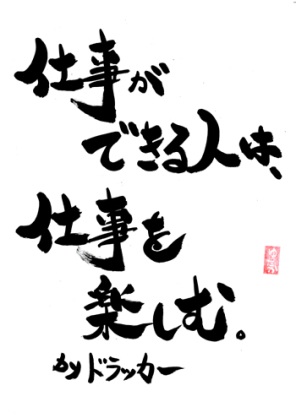 仕事が
できる人は、
仕事を
楽しむ。
byドラッカー